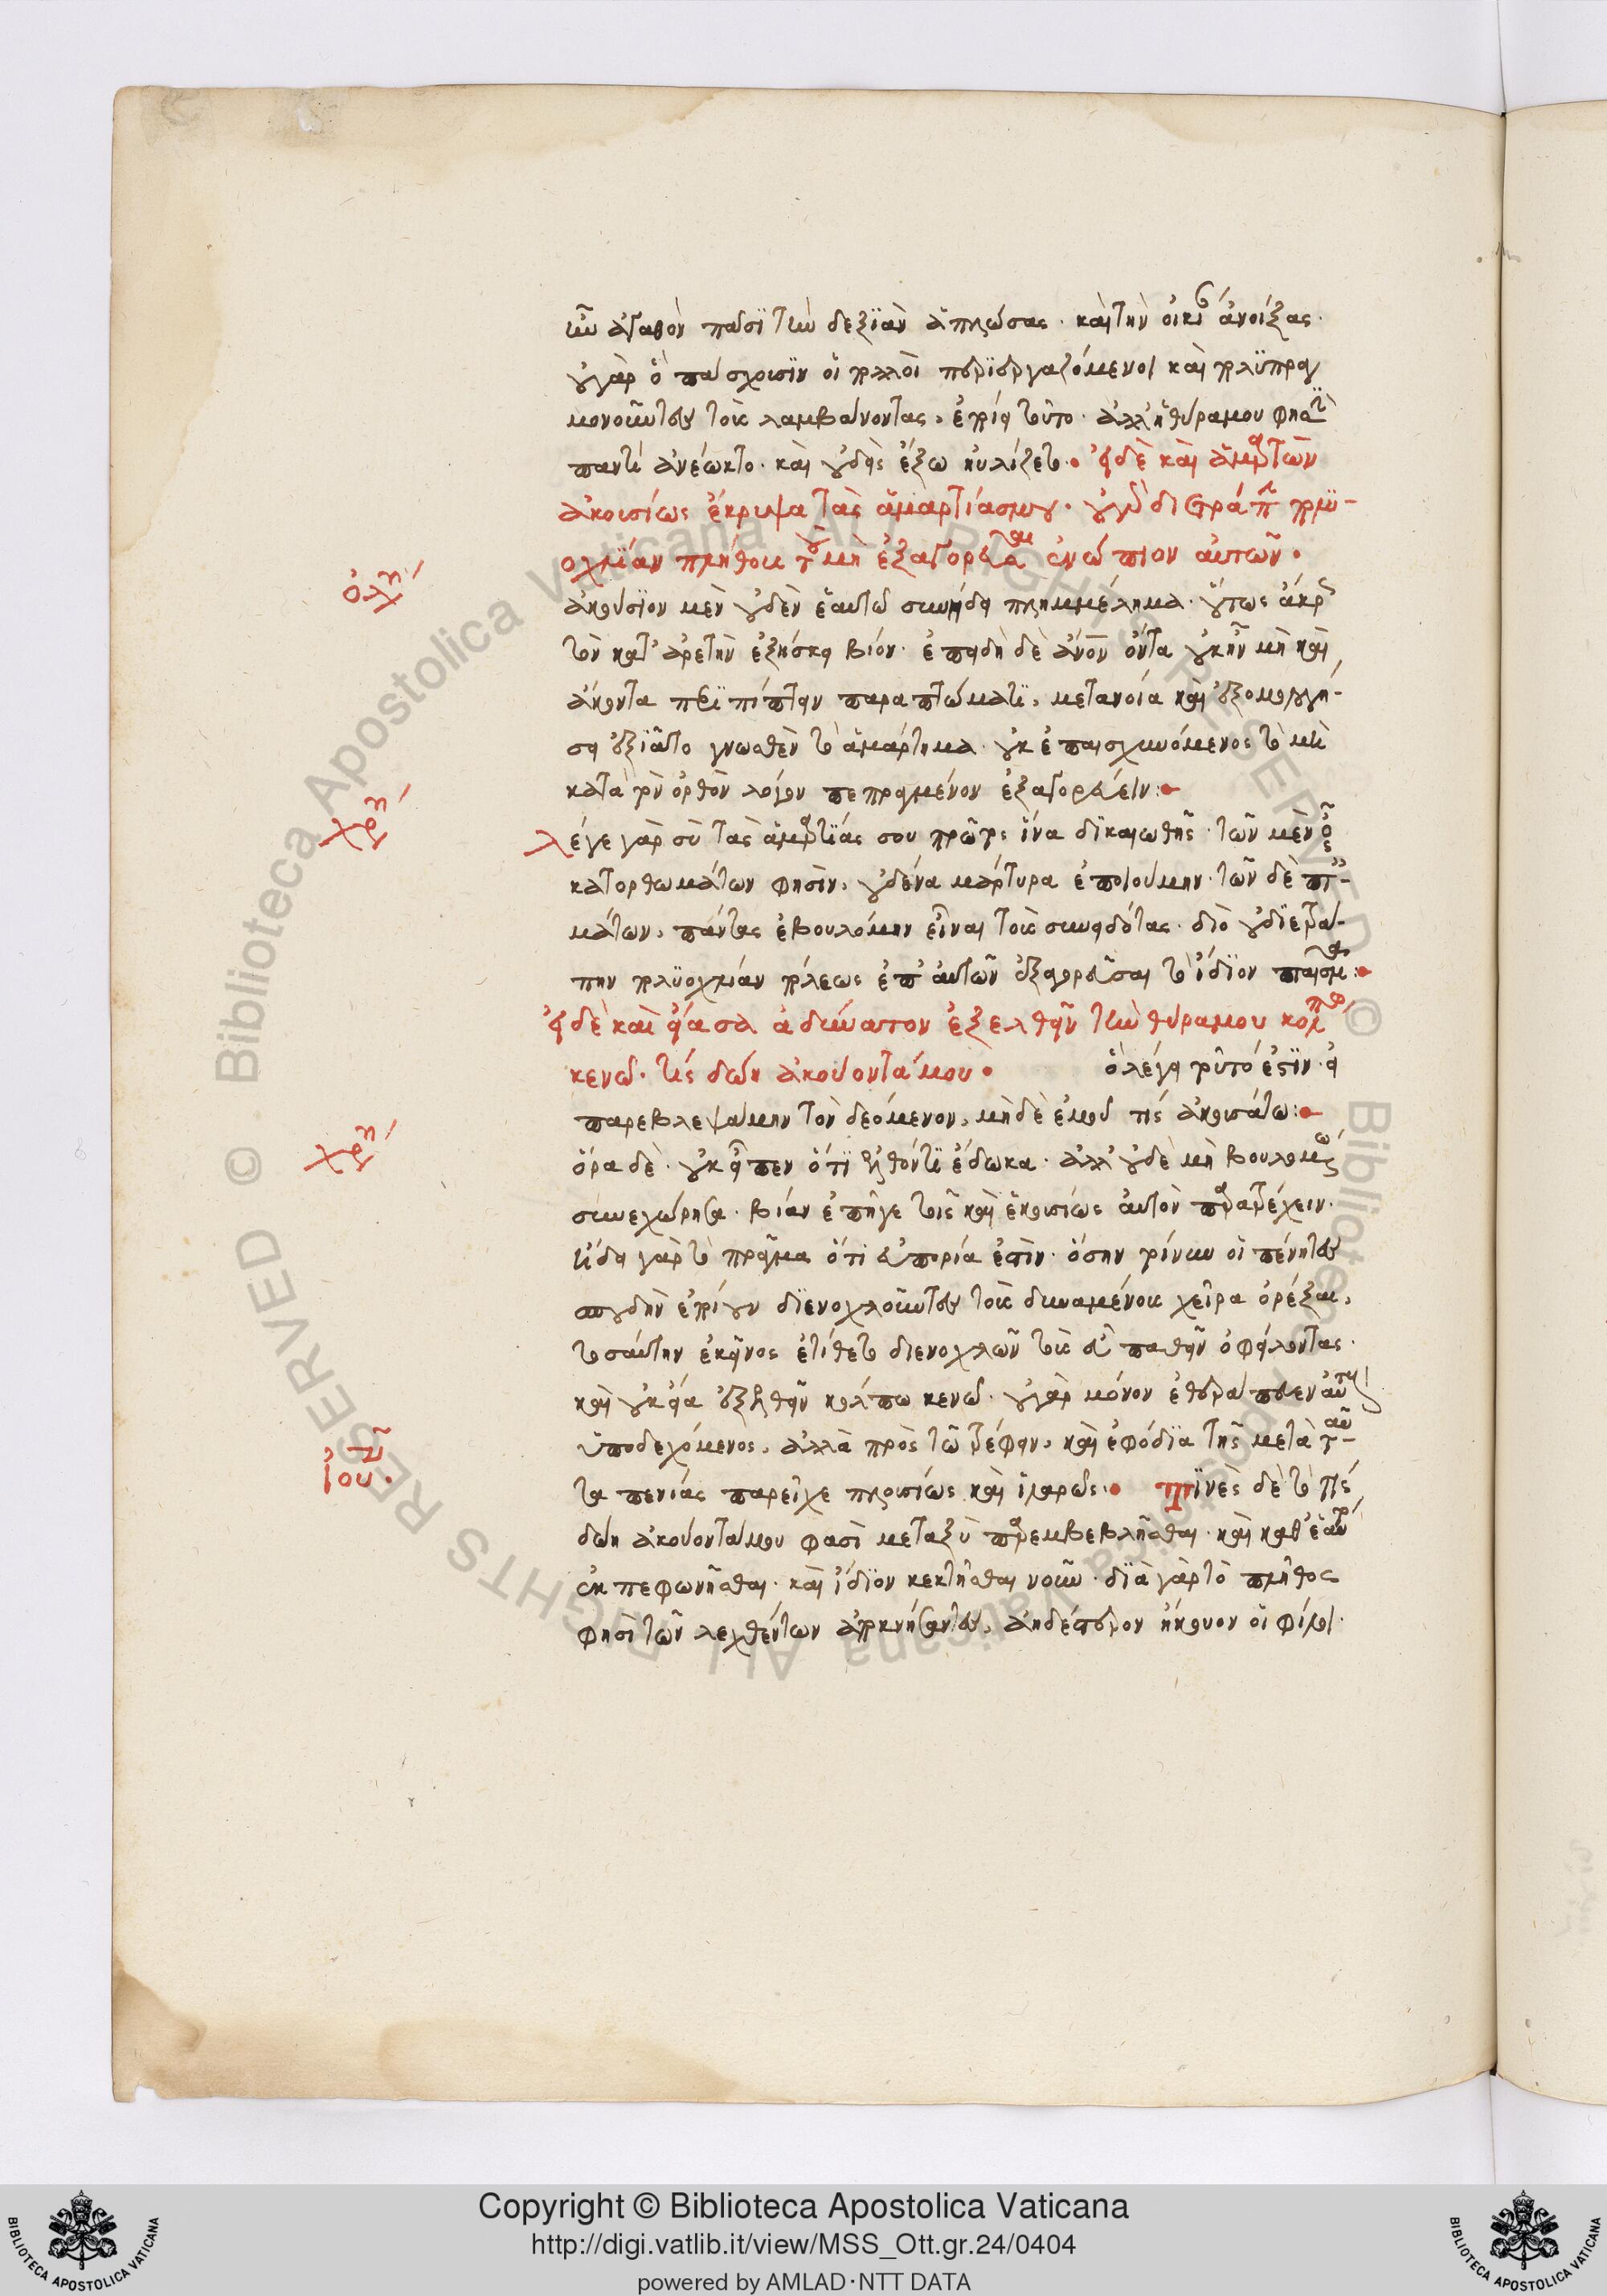 ὢν ἀγαθὸν πᾶσι τὴν δεξιὰν ἁπλώσας· καὶ τὴν οἰκίαν ἀνοίξας·
οὐ γὰρ ὃ πάσχουσιν οἱ πολλοὶ περιεργαζόμενοι καὶ πολυπραγ
μονοῦντες τοὺς λαμβάνοντας, ἐποίει τοῦτο· ἀλλ' ἡ θύρα μου φησὶ
παντὶ ἀνέωκτο· καὶ οὐδεὶς ἔξω ηὐλίζετο· εἰ δὲ καὶ ἁμαρτὼν
ἀκουσίως ἔκρυψα τὰς ἁμαρτίας μου· οὐ γὰρ διετράπην πολυ-
οχλίαν πλήθους τοῦ μὴ ἐξαγορεῦσαι ἐνώπιον αὐτῶν·
ἀκούσιον μὲν οὐδὲν ἑαυτῷ συνῄδει πλημμέλημα· οὕτως ἄκρως
τὸν κατ' ἀρετὴν ἐξήσκει βίον· ἐπειδὴ δὲ ἄνον ὄντα οὐκ ἦν μὴ καὶ
ἄκοντα περιπίπτειν παραπτώματι, μετανοία καὶ ἐξομολογή-
σει ἐξιᾶτο γνωσθὲν τὸ ἁμάρτημα· οὐκ ἐπαισχυνόμενος τὸ μὴ
κατὰ τὸν ὀρθὸν λόγον πεπραγμένον ἐξαγορεύειν:
λέγε γὰρ σὺ τὰς ἁμαρτίας σου πρῶτος ἵνα δικαιωθῇς· τῶν μὲν
κατορθωμάτων φησὶν, οὐδένα μάρτυρα ἐποιούμην· τῶν δὲ πται-
μάτων, πάντας ἐβουλόμην εἶναι τοὺς συνειδότας· διὸ οὐ διετρά-
πην πολυοχλίαν πόλεως ἐπ' αὐτῶν ἐξαγορεῦσαι τὸ ἴδιον πταῖσμα:
εἰ δὲ καὶ εἴασα ἀδύνατον ἐξελθεῖν τὴν θύραν μου κόλπῳ
κενῷ· τίς δῴη ἀκούοντά μου· ὃ λέγει τοῦτό ἐστιν· εἰ
παρεβλεψάμην τὸν δεόμενον, μηδὲ ἐμοῦ τίς ἀκουσάτω:
ὅρα δὲ· οὐκ εἶπεν ὅτι ἐλθόντι ἔδωκα· ἀλλ' οὐδὲ μὴ βουλομένως
συνεχώρησα· βίαν ἐπῆγε τοῖς καὶ ἑκουσίως αὐτὸν παρατρέχειν·
ᾔδει γὰρ τὸ πρᾶγμα ὅτι εὐπορία ἐστὶν· ὅσην τοίνυν οἱ πένητες
σπουδὴν ἐποίουν διενοχλοῦντες τοὺς δυναμένους χεῖρα ὀρέξαι,
τοσαύτην ἐκεῖνος ἐτίθετο διενοχλῶν τοὺς εὖ παθεῖν ὀφείλοντας·
καὶ οὐκ εἴα ἐξελθεῖν κόλπῳ κενῷ· οὐ γὰρ μόνον ἐθεράπευεν αὐτοὺς
ὑποδεχόμενος, ἀλλὰ πρὸς τῷ τρέφειν, καὶ ἐφόδια τῆς μετὰ ταῦ-
τα πενίας παρεῖχε πλουσίως καὶ ἱλαρῶς· τινὲς δὲ τὸ τίς
δῴη ἀκούοντά μου φασὶ μεταξὺ παρεμβεβλῆσθαι· καὶ καθ' ἑαυτὸ
ἐκπεφωνῆσθαι· καὶ ἴδιον κεκτῆσθαι νοῦν· διὰ γὰρ τὸ πλῆθος
φησὶ τῶν λεχθέντων ἀποκνήσαντες, ἀηδέστερον ἤκουον οἱ φίλοι·
ὀλυ
χρυ
χρυ
Ἰου
© Biblioteca Apostolica Vaticana ALL RIGHTS RESERVED
Copyright © Biblioteca Apostolica Vaticana
http://digi.vatlib.it/view/MSS_Ott.gr.24/0404
powered by AMLAD·NTT DATA
BIBLIOTECA APOSTOLICA VATICANA
BIBLIOTECA APOSTOLICA VATICANA